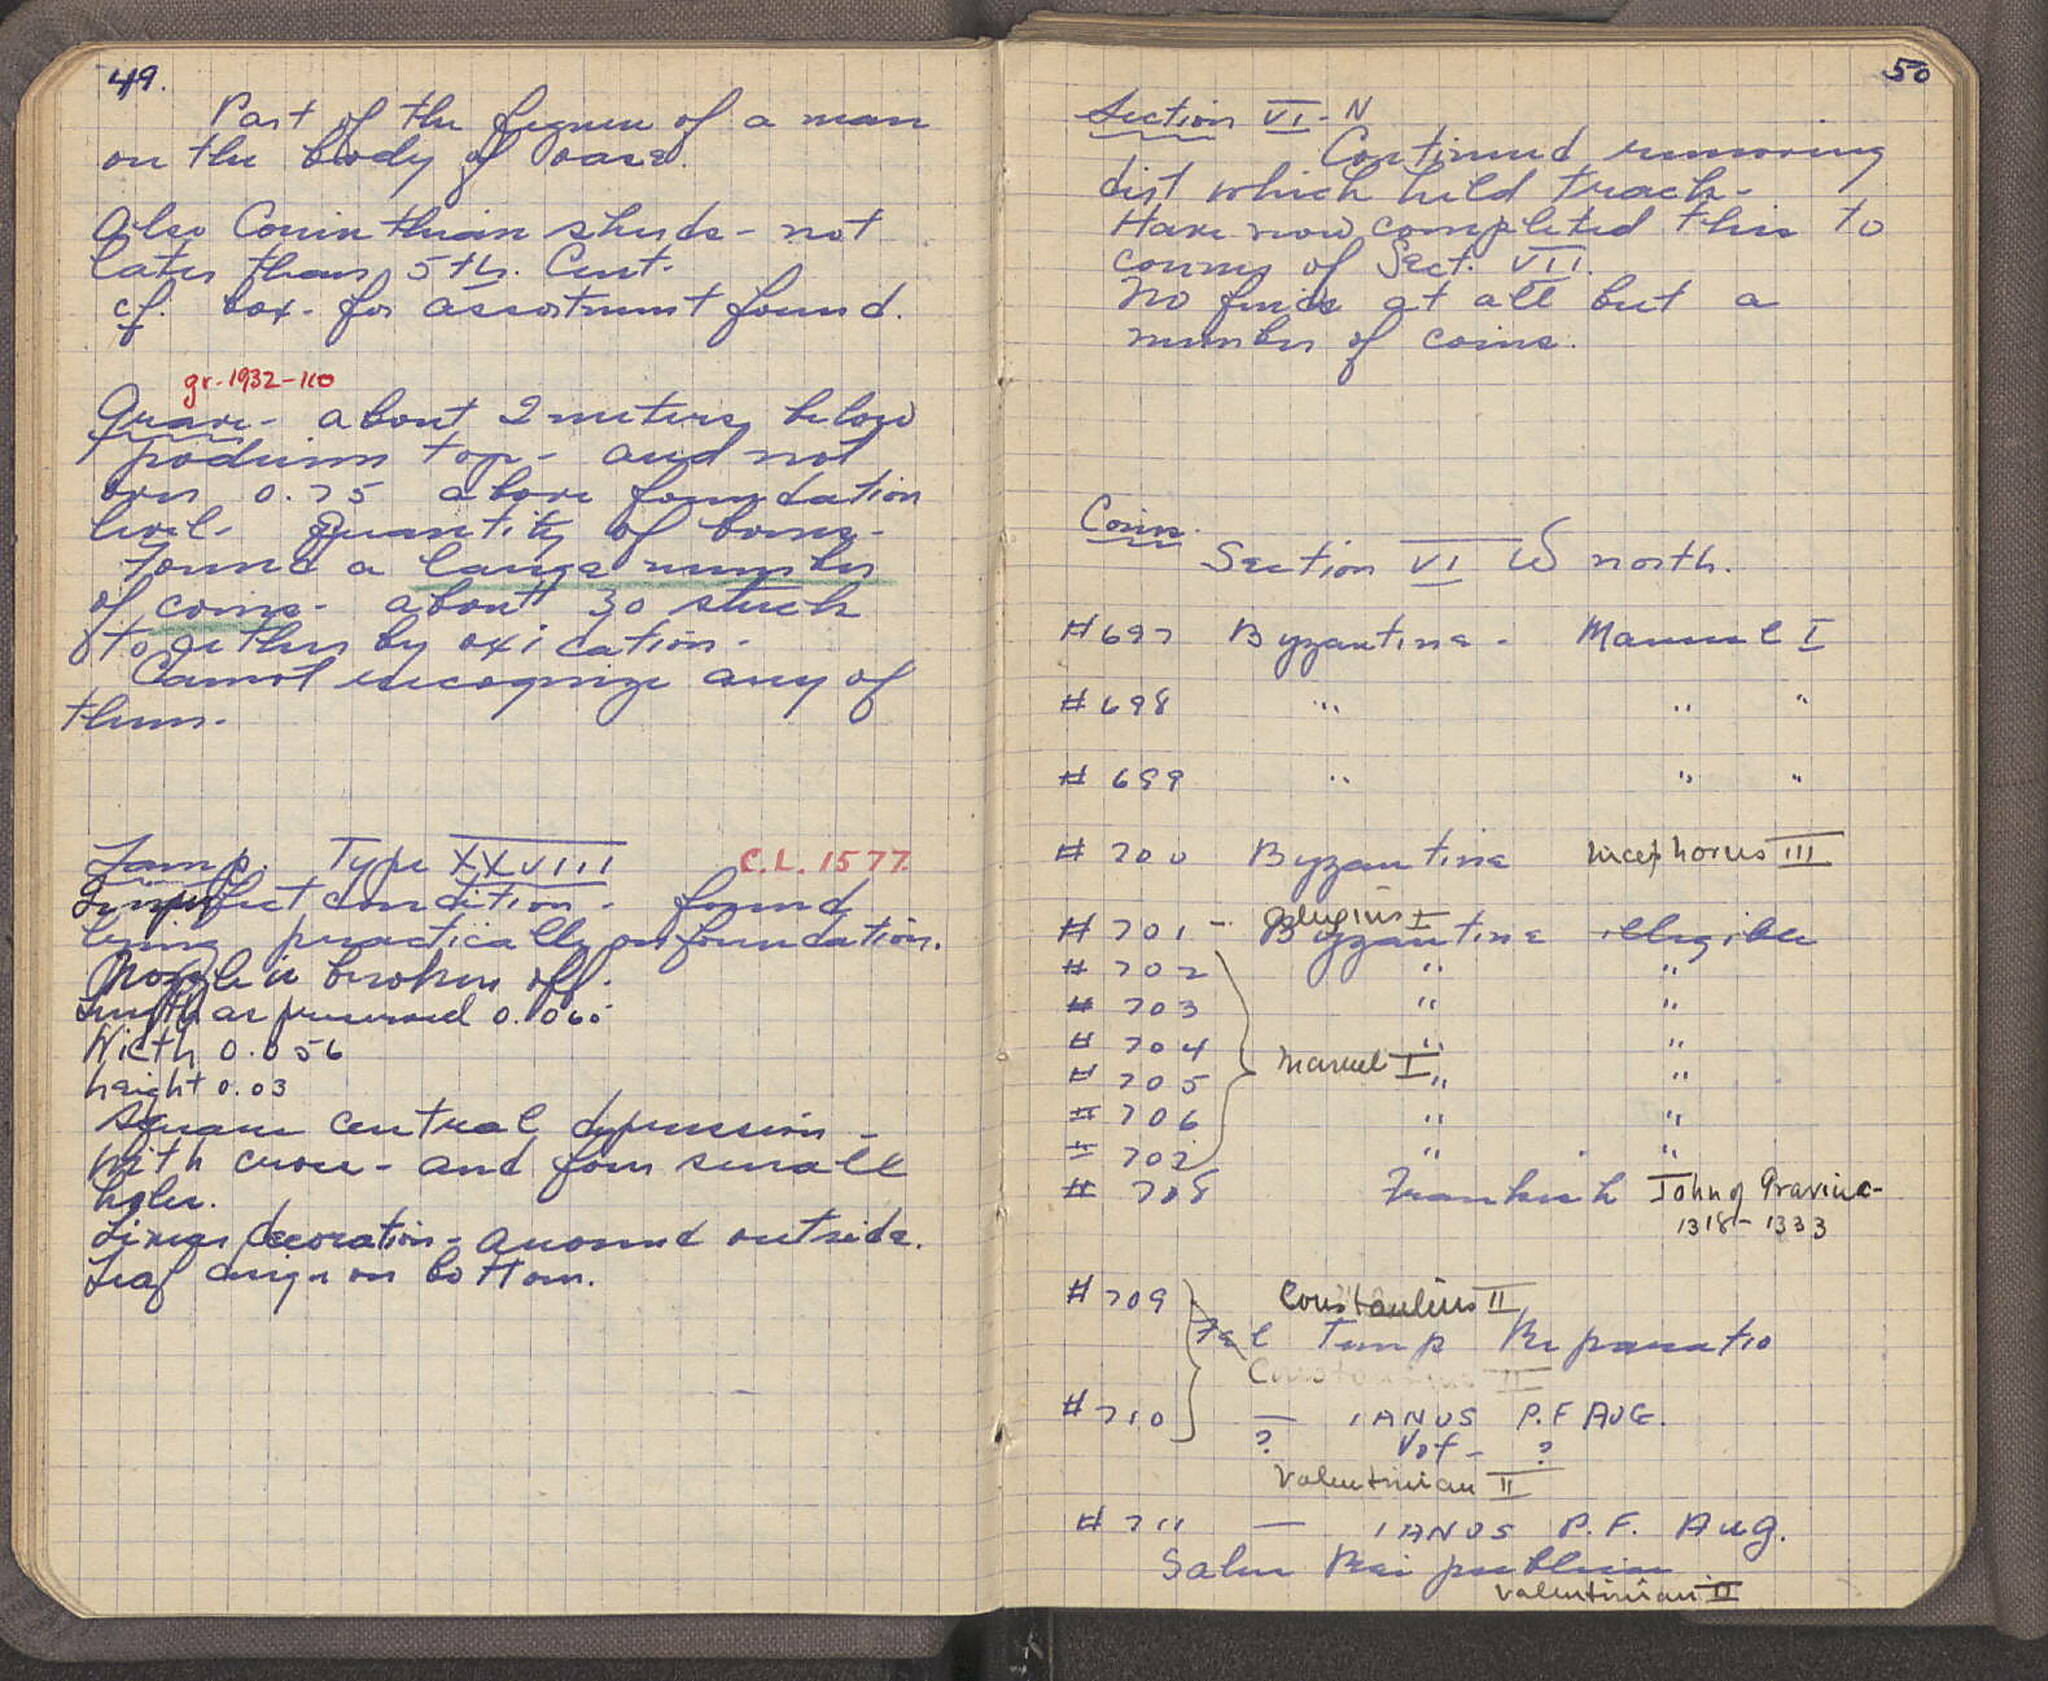 49.
Part of the figure of a man
on the body of vase.
Also Corinthian sherds - not
later than 5th. Cent.
cf. box. for assortment found.
gr. 1932-110
Grave - about 2 meters below
podium top - and not
over 0.75 above foundation
level. Quantity of bones -
Found a large number
of coins - about 30 stuck
together by oxication -
Cannot recognize any of
them.
Lamp. Type XXVIII C.L. 1577.
Imperfect condition - found
lying practically on foundation.
Nozzle is broken off.
Length as preserved 0.065
Width 0.056
height 0.03
Square central depression -
With cross - and four small
holes.
Linear decoration - around outside.
Leaf design on bottom.
50
Section VI - N
Continued removing
dirt which held track -
Have now completed this to
corner of Sect. VII.
No finds at all but a
number of coins.
Coins.
Section VI W north.
#697 Byzantine - Manuel I
#698 " " "
#699 " " "
#700 Byzantine Nicephorus III
Alexius I
#701 - Byzantine illegible
#702 " "
#703 " "
#704 " "
Manuel I
#705 " "
#706 " "
#707 " "
#708 Frankish John of Gravina -
1318 - 1333
#709 Constantius II
Fel Temp Reparatio
#710 — IANUS P.F AUG.
? Vot - ?
Valentinian II
#711 — IANUS P.F. Aug.
Salus Rei publicae
Valentinian II